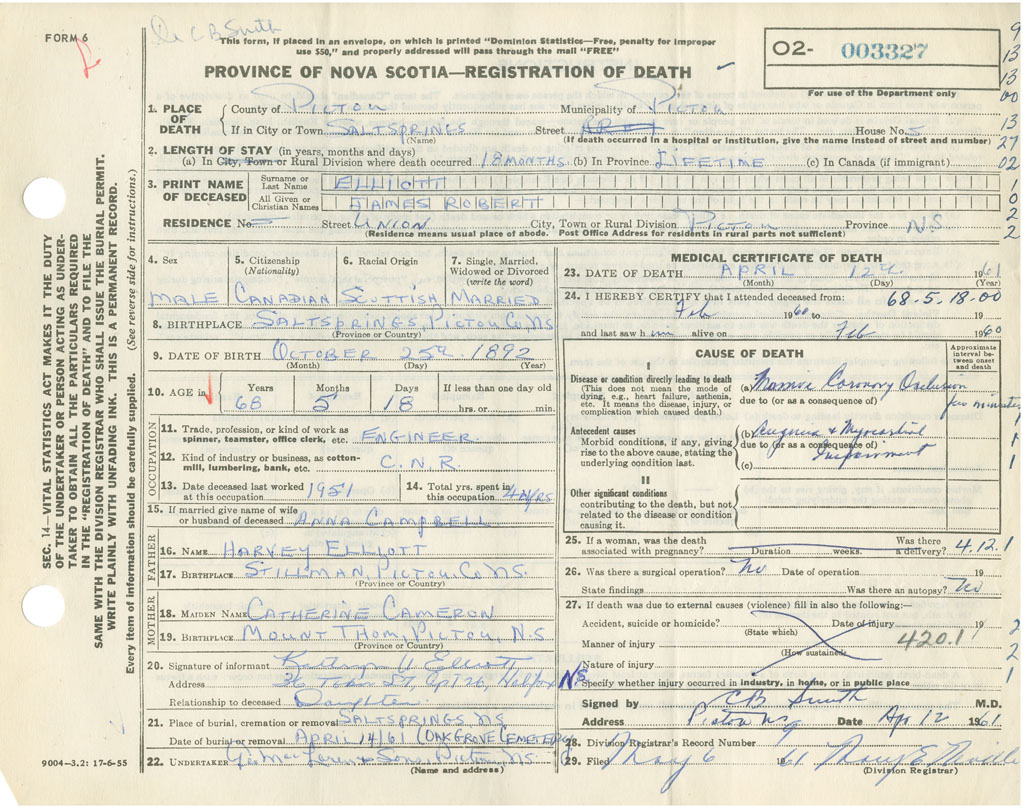 FORM 6
Dr C B Smith
This form, if placed in an envelope, on which is printed "Dominion Statistics—Free, penalty for improper
use $50," and properly addressed will pass through the mail "FREE"
PROVINCE OF NOVA SCOTIA—REGISTRATION OF DEATH
O2- 003327
For use of the Department only
9
13
13
00
13
27
02
1
0
2
2
SEC. 14—VITAL STATISTICS ACT MAKES IT THE DUTY
OF THE UNDERTAKER OR PERSON ACTING AS UNDER-
TAKER TO OBTAIN ALL THE PARTICULARS REQUIRED
IN THE "REGISTRATION OF DEATH" AND TO FILE THE
SAME WITH THE DIVISION REGISTRAR WHO SHALL ISSUE THE BURIAL PERMIT.
WRITE PLAINLY WITH UNFADING INK. THIS IS A PERMANENT RECORD.
Every item of information should be carefully supplied. (See reverse side for instructions.)
1. PLACE OF DEATH
County of PICTOU Municipality of PICTOU
If in City or Town SALTSPRINGS Street RR#1 House No.
(Name) (If death occurred in a hospital or institution, give the name instead of street and number)
2. LENGTH OF STAY (in years, months and days)
(a) In City, Town or Rural Division where death occurred 18 MONTHS (b) In Province LIFETIME (c) In Canada (if immigrant)
3. PRINT NAME OF DECEASED
Surname or Last Name ELLIOTT
All Given or Christian Names JAMES ROBERT
RESIDENCE No. Street UNION City, Town or Rural Division PICTOU Province N.S
(Residence means usual place of abode. Post Office Address for residents in rural parts not sufficient)
4. Sex 5. Citizenship (Nationality) 6. Racial Origin 7. Single, Married, Widowed or Divorced (write the word)
MALE CANADIAN SCOTTISH MARRIED
8. BIRTHPLACE SALTSPRINGS, PICTOU Co, NS
(Province or Country)
9. DATE OF BIRTH OCTOBER 25th 1892
(Month) (Day) (Year)
10. AGE in Years Months Days If less than one day old
68 5 18 hrs. or min.
OCCUPATION
11. Trade, profession, or kind of work as spinner, teamster, office clerk, etc. ENGINEER
12. Kind of industry or business, as cotton-mill, lumbering, bank, etc. C.N.R.
13. Date deceased last worked at this occupation 1951 14. Total yrs. spent in this occupation
15. If married give name of wife or husband of deceased ANNA CAMPBELL
FATHER
16. NAME HARVEY ELLIOTT
17. BIRTHPLACE STILLMAN, PICTOU, Co NS.
(Province or Country)
MOTHER
18. MAIDEN NAME CATHERINE CAMERON
19. BIRTHPLACE MOUNT THOM, PICTOU, N.S
(Province or Country)
20. Signature of informant Elliott
Address Halifax NS
Relationship to deceased Daughter
21. Place of burial, cremation or removal SALTSPRINGS, NS
Date of burial or removal APRIL 14/61 (OAKGROVE CEMETERY)
22. UNDERTAKER & Sons, Pictou, NS.
(Name and address)
9004—3.2: 17-6-55
MEDICAL CERTIFICATE OF DEATH
23. DATE OF DEATH APRIL 12th 1961
(Month) (Day) (Year)
24. I HEREBY CERTIFY that I attended deceased from: 68-5.18-00
Feb 1960 to 19
and last saw him alive on Feb 1960
CAUSE OF DEATH
Approximate interval between onset and death
I
Disease or condition directly leading to death
(This does not mean the mode of dying, e.g., heart failure, asthenia, etc. It means the disease, injury, or complication which caused death.)
(a) Massive Coronary Occlusion few minutes
due to (or as a consequence of)
Antecedent causes
Morbid conditions, if any, giving rise to the above cause, stating the underlying condition last.
(b) Angina & Myocardial Impairment
due to (or as a consequence of)
(c)
1
1
1
II
Other significant conditions
contributing to the death, but not related to the disease or condition causing it.
25. If a woman, was the death associated with pregnancy? Duration weeks. Was there a delivery? 4.12.1
26. Was there a surgical operation? No Date of operation 19
State findings Was there an autopsy? No
27. If death was due to external causes (violence) fill in also the following:—
Accident, suicide or homicide? Date of injury 19
(State which)
Manner of injury 420.1
(How sustained)
Nature of injury
Specify whether injury occurred in industry, in home, or in public place
2
2
1
Signed by CB Smith M.D.
Address Pictou NS Date Apr 12 1961
28. Division Registrar's Record Number
29. Filed May 6 1961 Mary E
(Division Registrar)